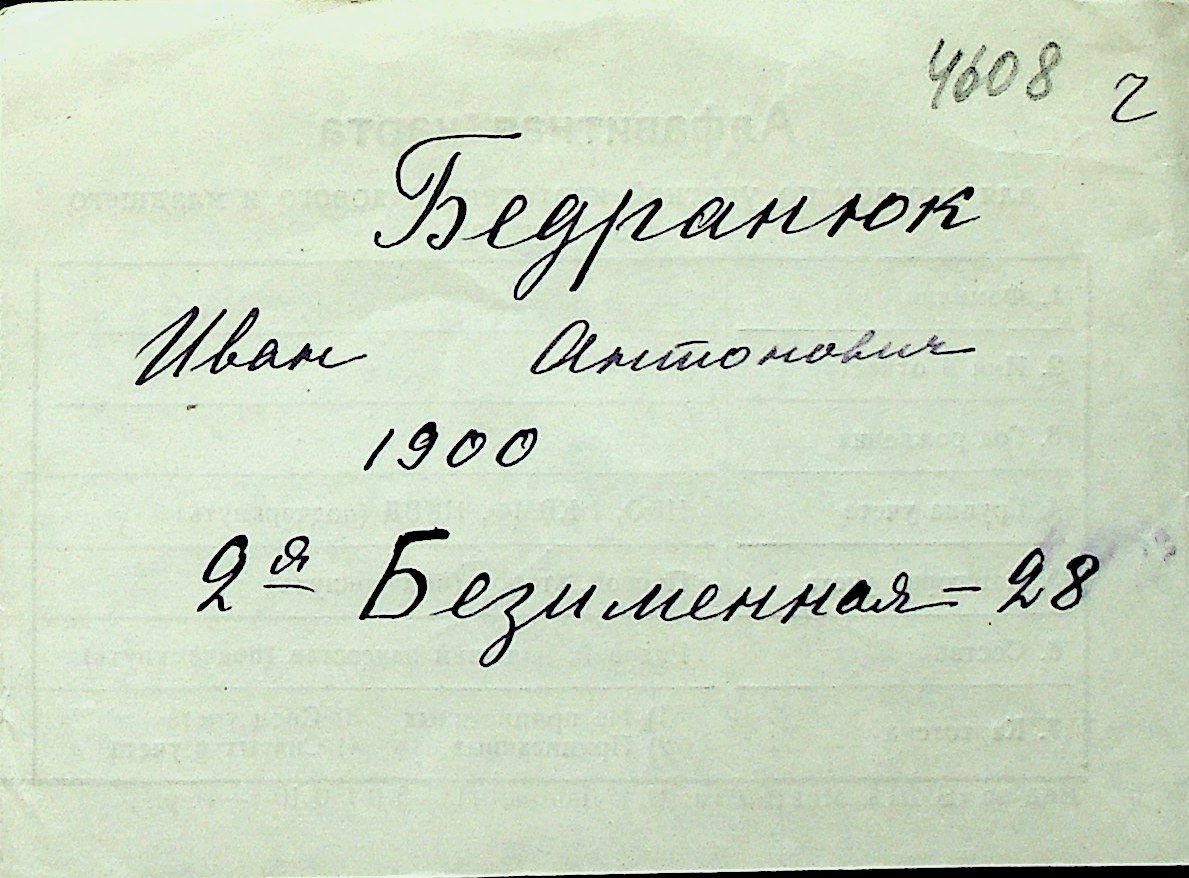 4608 г
Бедранюк
Иван Антонович
1900
2я Безименная = 28